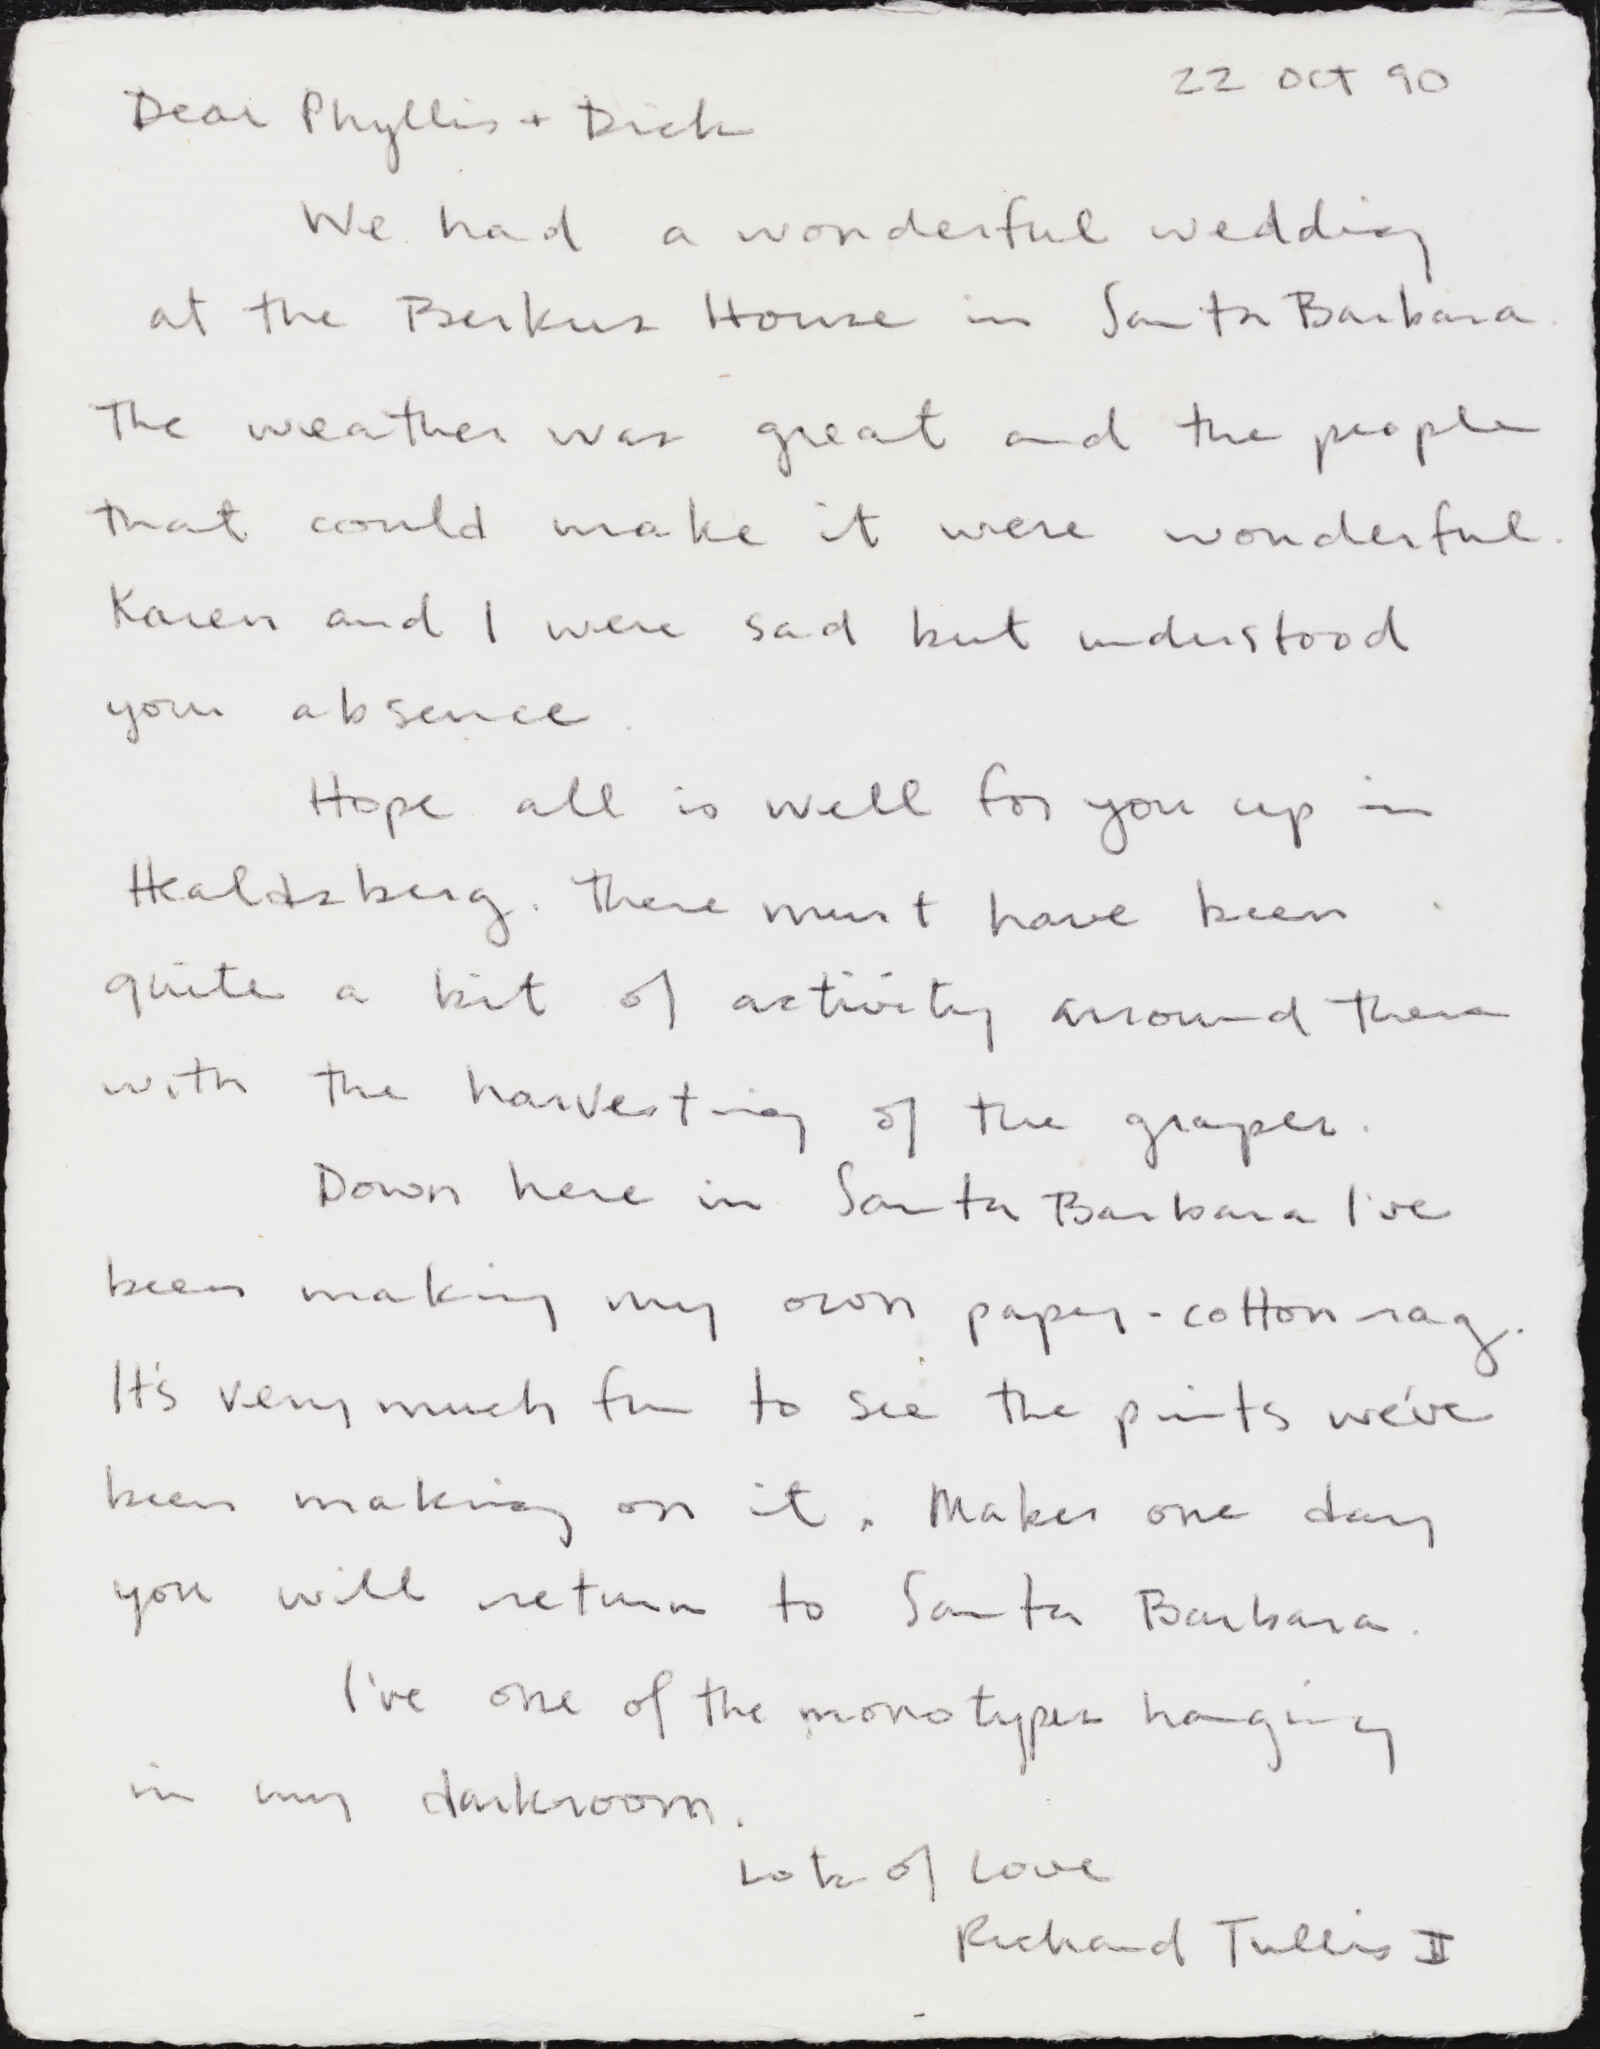 22 Oct 90
Dear Phyllis + Dick
We had a wonderful wedding
at the Berkus House in Santa Barbara.
The weather was great and the people
that could make it were wonderful.
Karen and I were sad but understood
your absence.
Hope all is well for you up in
Healdsberg. There must have been
quite a bit of activity arround there
with the harvesting of the grapes.
Down here in Santa Barbara I've
been making my own paper - cotton rag.
It's very much fun to see the prints we've
been making on it. Makes one day
you will return to Santa Barbara.
I've one of the monotypes hanging
in my darkroom.
Lots of Love
Richard Tullis II